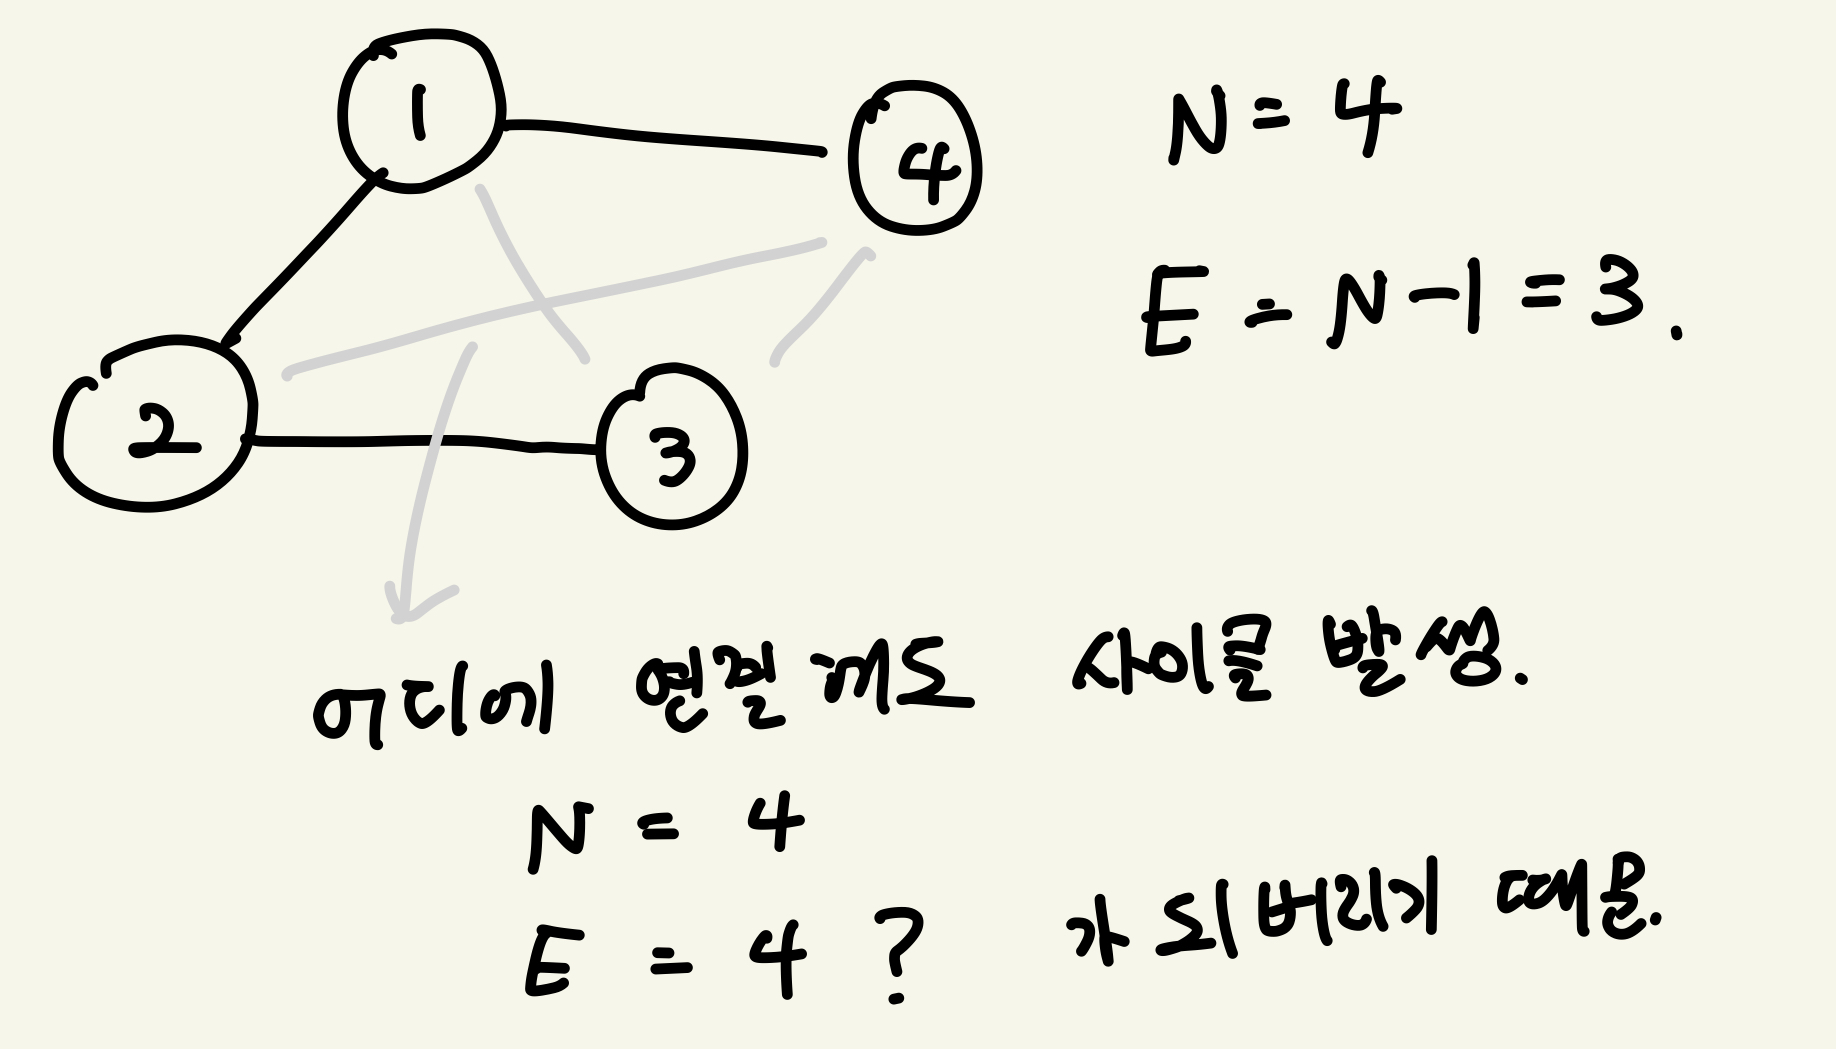 1
4
2
3
N = 4
E = N-1 = 3.
어디에 연결해도 사이클 발생.
N = 4
E = 4 ? 가 되버리기 때문.